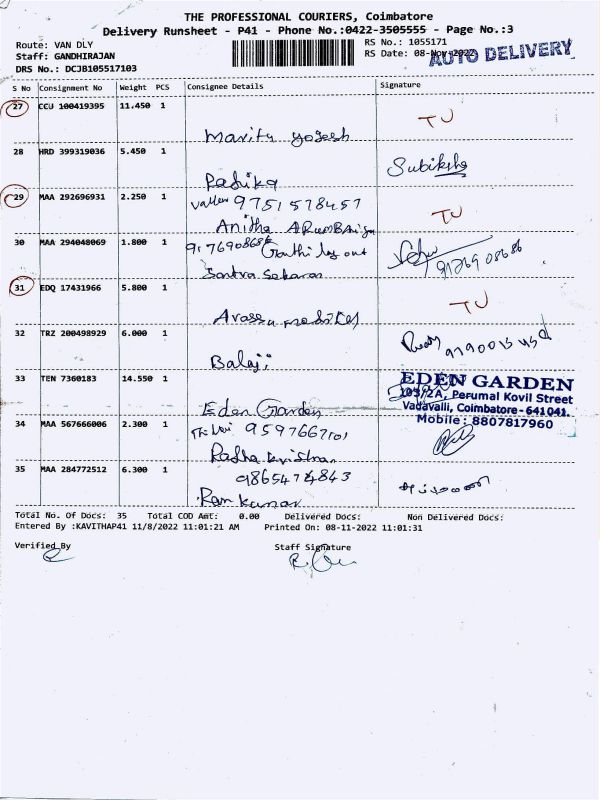 THE PROFESSIONAL COURIERS, Coimbatore
Delivery Runsheet - P41 - Phone No.:0422-3505555 - Page No.:3
Route: VAN DLY
RS No.: 1055171
Staff: GANDHIRAJAN
RS Date: 08-Nov-2022
AUTO DELIVERY
DRS No.: DCJB105517103
S No Consignment No Weight PCS Consignee Details Signature
27 CCU 100419395 11.450 1
TU
28 HRD 399319036 5.450 1
Subiksha
Radhika
29 MAA 292696931 2.250 1
9751578457
TU
Anitha
30 MAA 294048069 1.800 1
31 EDQ 17431966 5.800 1
TU
32 TRZ 200498929 6.000 1
Balaji
33 TEN 7360183 14.550 1
EDEN GARDEN
103/2A, Perumal Kovil Street
Vadavalli, Coimbatore - 641041.
Mobile: 8807817960
Eden Garden
34 MAA 567666006 2.300 1
Radha krishnan
35 MAA 284772512 6.300 1
9865474843
Ram kumar
Total No. Of Docs: 35 Total COD Amt: 0.00 Delivered Docs: Non Delivered Docs:
Entered By :KAVITHAP41 11/8/2022 11:01:21 AM Printed On: 08-11-2022 11:01:31
Verified By Staff Signature